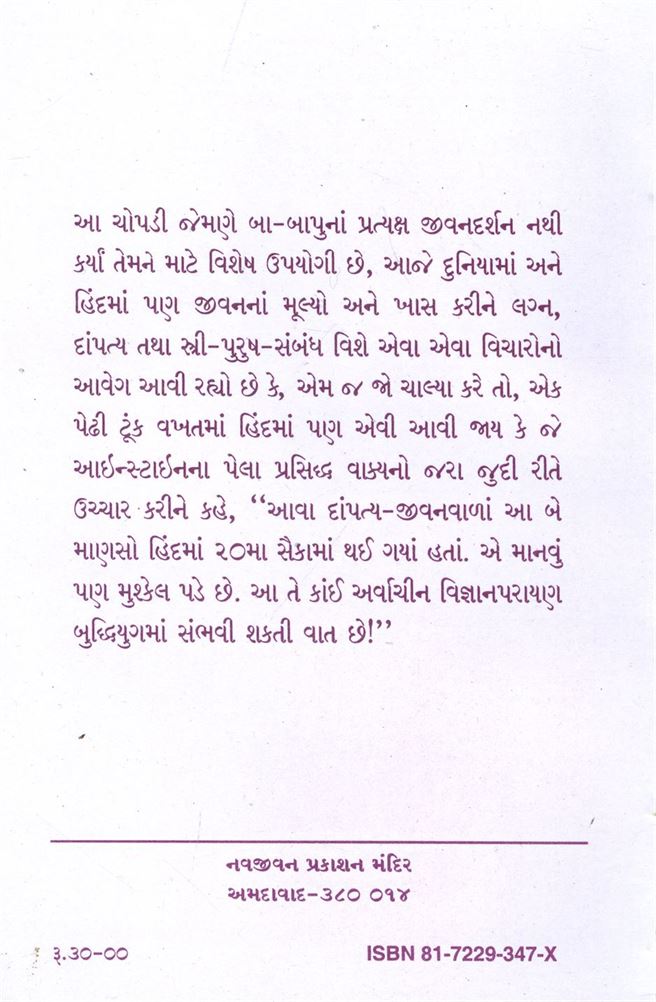 આ ચોપડી જેમણે બા-બાપુનાં પ્રત્યક્ષ જીવનદર્શન નથી
કર્યાં તેમને માટે વિશેષ ઉપયોગી છે, આજે દુનિયામાં અને
હિંદમાં પણ જીવનનાં મૂલ્યો અને ખાસ કરીને લગ્ન,
દાંપત્ય તથા સ્ત્રી-પુરુષ-સંબંધ વિશે એવા એવા વિચારોનો
આવેગ આવી રહ્યો છે કે, એમ જ જો ચાલ્યા કરે તો, એક
પેઢી ટૂંક વખતમાં હિંદમાં પણ એવી આવી જાય કે જે
આઇન્સ્ટાઇનના પેલા પ્રસિદ્ધ વાક્યનો જરા જુદી રીતે
ઉચ્ચાર કરીને કહે, “આવા દાંપત્ય-જીવનવાળાં આ બે
માણસો હિંદમાં ૨૦મા સૈકામાં થઈ ગયાં હતાં. એ માનવું
પણ મુશ્કેલ પડે છે. આ તે કાંઈ અર્વાચીન વિજ્ઞાનપરાયણ
બુદ્ધિયુગમાં સંભવી શકતી વાત છે!”
નવજીવન પ્રકાશન મંદિર
અમદાવાદ-૩૮૦ ૦૧૪
રૂ.૩૦-૦૦
ISBN 81-7229-347-X